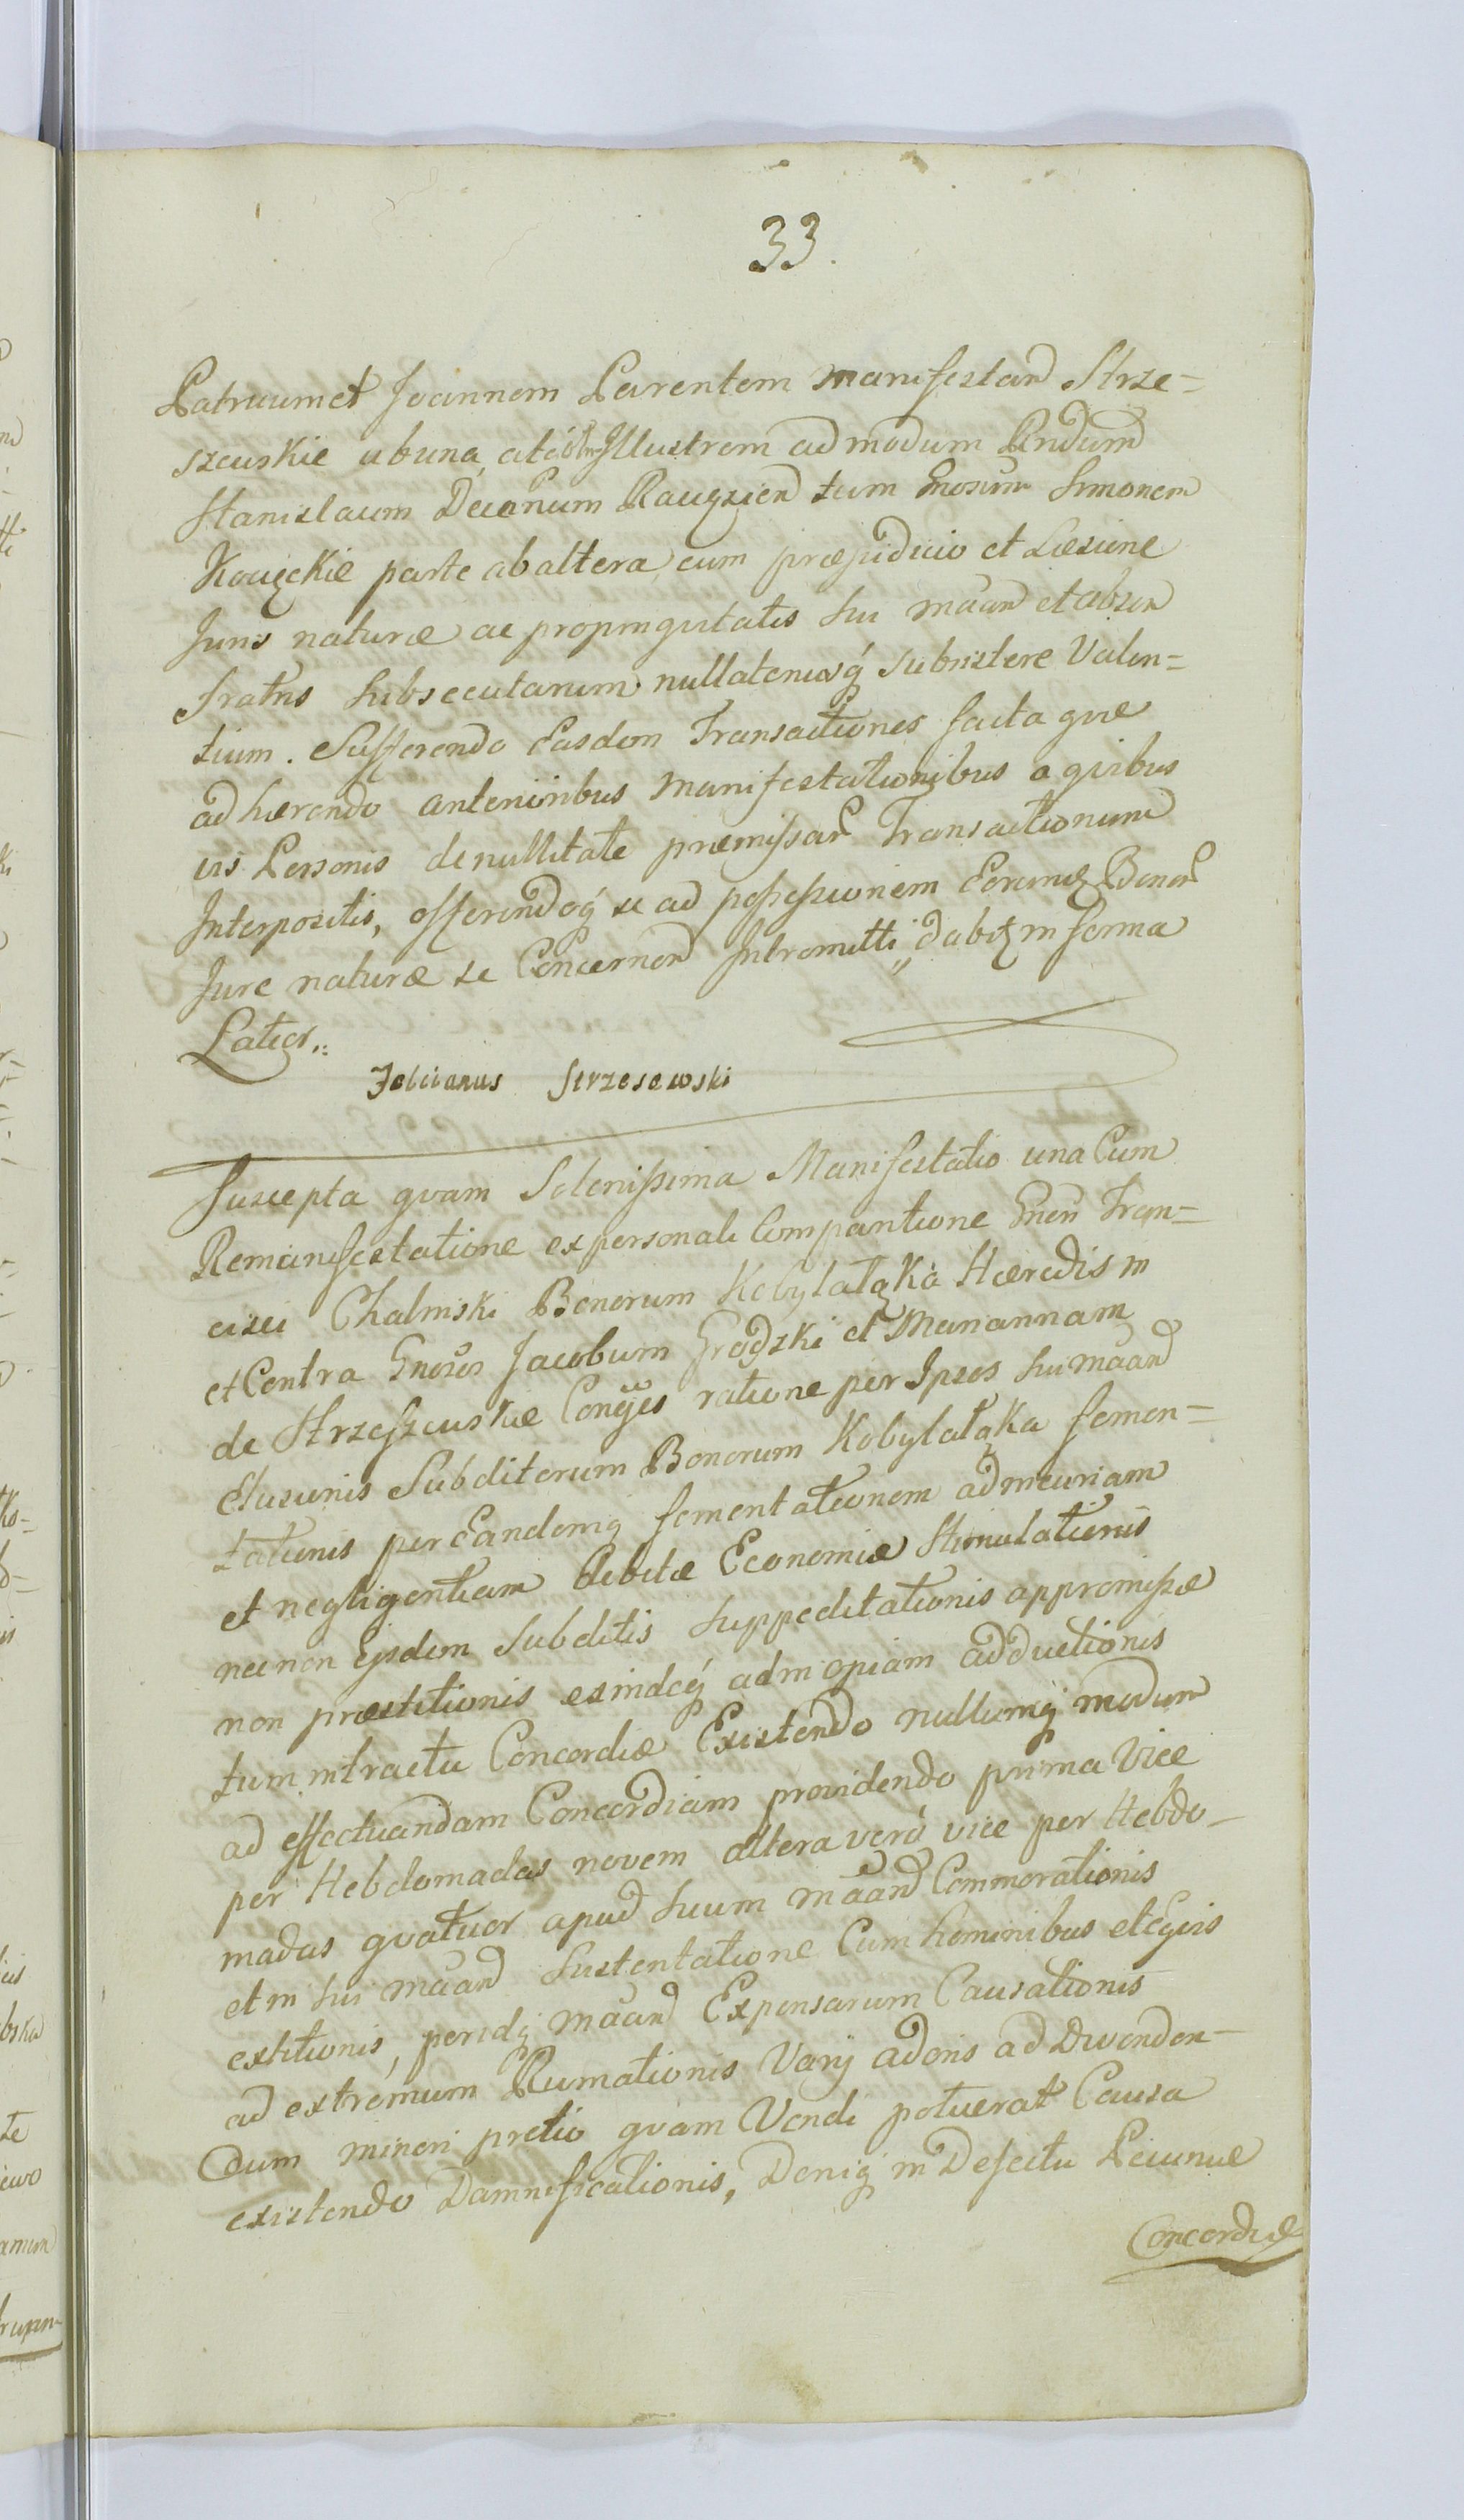 33.
Patruum et Joannem Parentem Manifestand Strze=
szewskie ab una, atq́ olim Illustrem admodum Rndum
Stanislaum Decanum Raygzien tum Gnosum Simonem
Kowęckie parte ab altera, cum præjudicio et Læsione
Juris naturæ ac propinqvitatis sui mãan et absen
Fratris subsecutarum nullatenusq́ subsistere Valen=
tium. Sufferendo Easdem Transactiones facta qvæ
adhærendo anterioribus Manifestationibus a qvibus
vis Personis de nullitate præmissar Transactionum
Interpositis, offerendoq́ se ad possessionem Eorumq Bonor
Jure naturæ se Concernen Intromitti, dabit in forma
Latior..
Felicianus Strzesewski
Suscepta qvam Solenissima Manifestatio una Cum
Remanifestatione ex personali Comparitione Gnen Fran=
cisci Chalmski Bonorum Kobylałąka Hæredis in
et Contra Gnosos Jacobum Grodzki et Mariannam
de Strzeszewskie Conjges ratione per Ipsos sui mãand
Elusionis Subditorum Bonorum Kobylałąka fomen=
tationis per Eandemq fomentationem ad incuriam
et negligentiam debitæ Economiæ Stimulationis
nec non Ejsdem Subditis suppeditationis appromissæ
non præstitionis exindeq́ ad inopiam adductionis
tum in tractu Concordiæ Existendo nullumq́ modum
ad effectuandam Concordiam providendo prima Vice
per Hebdomadas novem altera verò vice per Hebdo=
madas qvatuor apud suum mãand Commorationis
et in sui mãand Sustentatione Cum hominibus et Eqvis
extitionis, per idq́ mãand Expensarum Causationis
ad extremum Ruinationis Varij aderis ad Divenden=
dum minori pretio qvam Vendi potuerat Causa
existendo Damnificationis, Deniq́ in Defectu Pecuniæ
Concordiæ